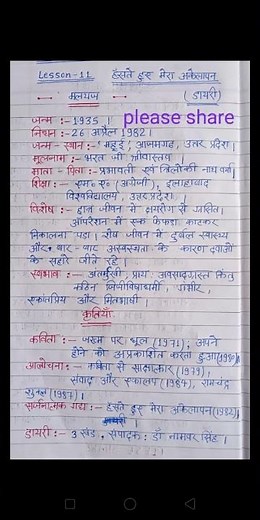 Lesson-11 हँसते हुए मेरा अकेलापन
मलयज (डायरी)
जन्म :- 1935 । please share
निधन :- 26 अप्रैल 1982 ।
जन्म-स्थान :- महुई, आजमगढ़, उत्तर प्रदेश ।
मूलनाम :- भरत जी श्रीवास्तव
माता-पिता :- प्रभावती एवं त्रिलोकी नाथ वर्मा
शिक्षा :- एम० ए० (अंग्रेजी), इलाहाबाद
विश्वविद्यालय, उत्तर प्रदेश ।
विशेष :- छात्र जीवन में क्षयरोग से ग्रसित।
ऑपरेशन में एक फेफड़ा काटकर
निकालना पड़ा। शेष जीवन में दुर्बल स्वास्थ्य
और बार-बार अस्वस्थता के कारण दवाओं
के सहारे जीते रहे ।
स्वभाव :- अंतर्मुखी, प्रायः अवसादग्रस्त किंतु
कठिन जिजीविषाधर्मी, गंभीर,
एकांतप्रिय और मितभाषी ।
कृतियाँ
कविता :- जख्म पर धूल (1971), अपने
होने को अप्रकाशित करता हुआ (1980)
आलोचना :- कविता से साक्षात्कार (1979),
संवाद और एकालाप (1984), रामचंद्र
शुक्ल (1987) ।
सर्जनात्मक गद्य :- हँसते हुए मेरा अकेलापन (1982)
डायरी :- 3 खंड, संपादक: डॉ नामवर सिंह ।